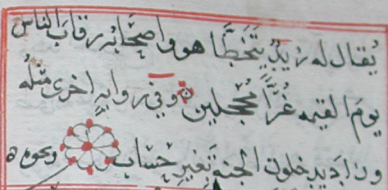 يُقال له زيد يتخطا هو واصحابه رقاب الناس
يوم القيمه غرًّا محجلين وفي رواية اخرى مثله
وزاد يدخلون الجنة بغير حساب ونحوه